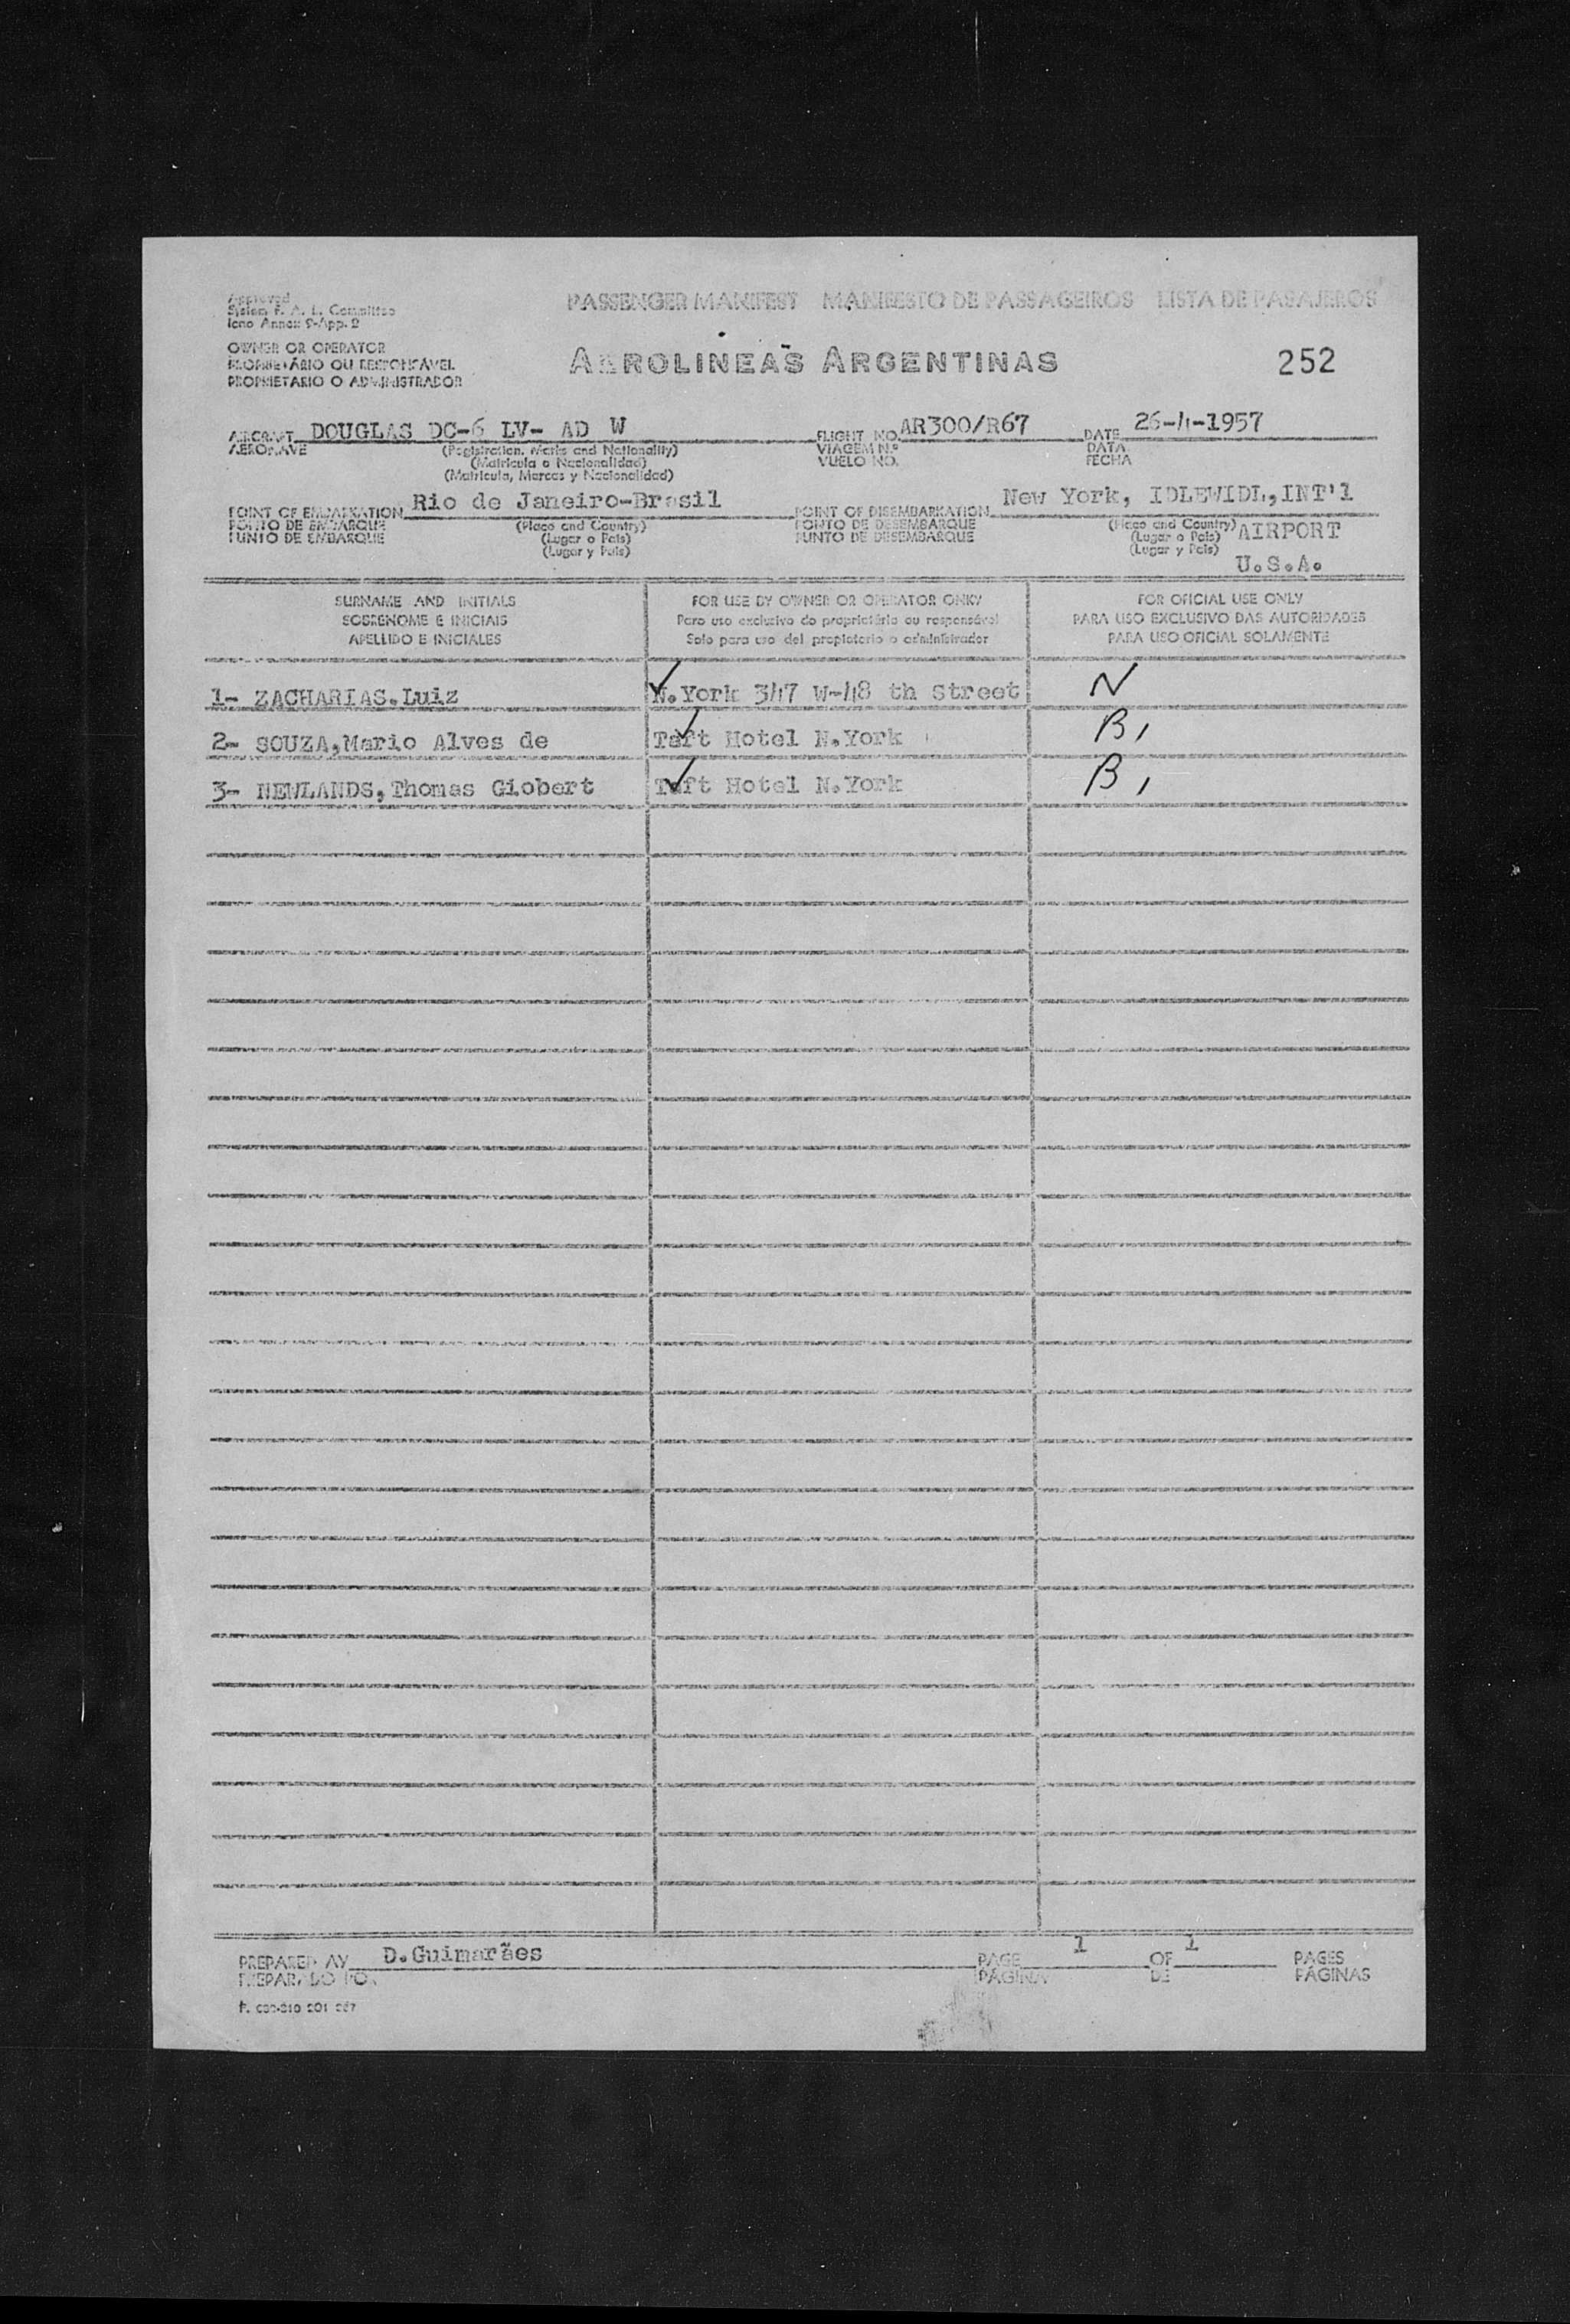 Approved
System F. A. L. Committee
Icao Annex 9-App. 2
PASSENGER MANIFEST MANIFESTO DE PASSAGEIROS LISTA DE PASAJEROS
OWNER OR OPERATOR
PROPRIETÁRIO OU RESPONSÁVEL
PROPRIETARIO O ADMINISTRADOR
AEROLINEAS ARGENTINAS
252
AIRCRAFT DOUGLAS DC-6 LV- AD W FLIGHT NO. AR300/R67 DATE 26-4-1957
AERONAVE (Registration, Marks and Nationality) VIAGEM N.º DATA
(Matricula o Nacionalidad) VUELO NO. FECHA
(Matricula, Marcas y Nacionalidad)
POINT OF EMBARKATION Rio de Janeiro-Brasil POINT OF DISEMBARKATION New York, IDLEWIDL,INT'l
PONTO DE EMBARQUE (Place and Country) PONTO DE DESEMBARQUE (Place and Country) AIRPORT
PUNTO DE EMBARQUE (Lugar o Pais) PUNTO DE DESEMBARQUE (Lugar o Pais)
(Lugar y Pais) (Lugar y Pais) U.S.A.
SURNAME AND INITIALS FOR USE BY OWNER OR OPERATOR ONKY FOR OFICIAL USE ONLY
SOBRENOME E INICIAIS Para uso exclusivo do proprietário ou responsável PARA USO EXCLUSIVO DAS AUTORIDADES
APELLIDO E INICIALES Solo para uso del propietario o administrador PARA USO OFICIAL SOLAMENTE
1- ZACHARIAS,Luiz N.York 347 W-48 th Street N
2- SOUZA,Mario Alves de Taft Hotel N.York B,
3- NEWLANDS,Thomas Giobert Taft Hotel N.York B,
PREPARED AV D.Guimarães PAGE 1 OF 1 PAGES
PREPARADO POR PÁGINA DE PÁGINAS